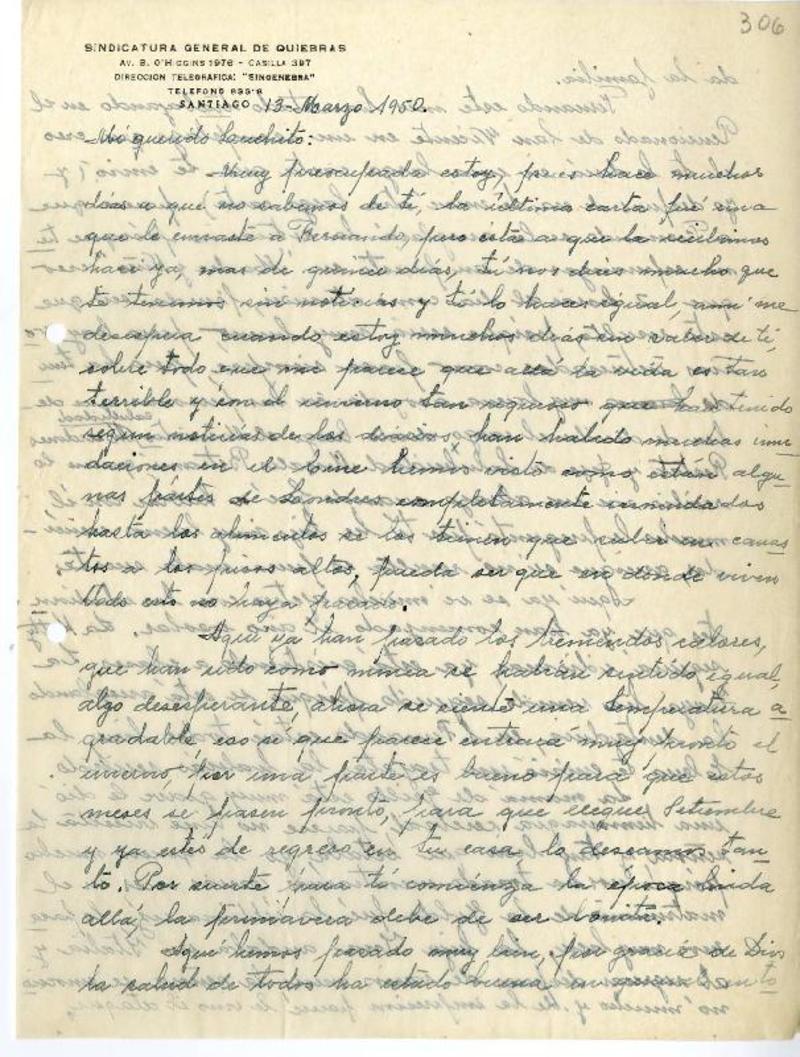 306
SINDICATURA GENERAL DE QUIEBRAS
AV. B. O'HIGGINS 1976 - CASILLA 397
DIRECCION TELEGRAFICA: "SINGENEBRA"
TELEFONO
SANTIAGO 13 - Marzo 1950.
Mi querido Luuchito:
Muy preocupada estoy, pues hace muchos
días a que no sabemos de tí, la última carta fué una
que le enviaste a Fernando, pero ésta a que la recibimos
hace ya, mas de quince días, tú nos dices mucho que
te tenemos sin noticias y tú lo haces igual, a mí me
desespera cuando estoy muchos días sin saber de tí,
sobre todo que me parece que allá la vida es tan
terrible y con el invierno tan riguroso que han tenido
según noticias de los diarios, han habido muchas inun
daciones en el Cine hemos visto como están algu
nas partes de Londres completamente inundadas
hasta los alimentos se los tienen que subir en canas
tos a los pisos altos, pueda ser que en donde viven
todo esto no haya pasado.
Aquí ya han pasado los tremendos calores,
que han sido como nunca se habían sentido igual,
algo desesperante, ahora se siente una temperatura a
gradable eso sí que parece entrará muy pronto el
invierno, por una parte es bueno para que estos
meses se pasen pronto, para que llegue Setiembre
y ya estés de regreso en tu casa, lo deseamos tan
to. Por suerte para tí comienza la época linda
allá, la primavera debe de ser bonita.
Aquí hemos pasado muy bien, por gracia de Dios
la salud de todos ha estado buena,